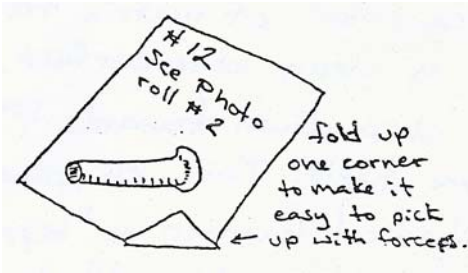 #12
See photo
roll #2
fold up
one corner
to make it
easy to pick
up with forceps.